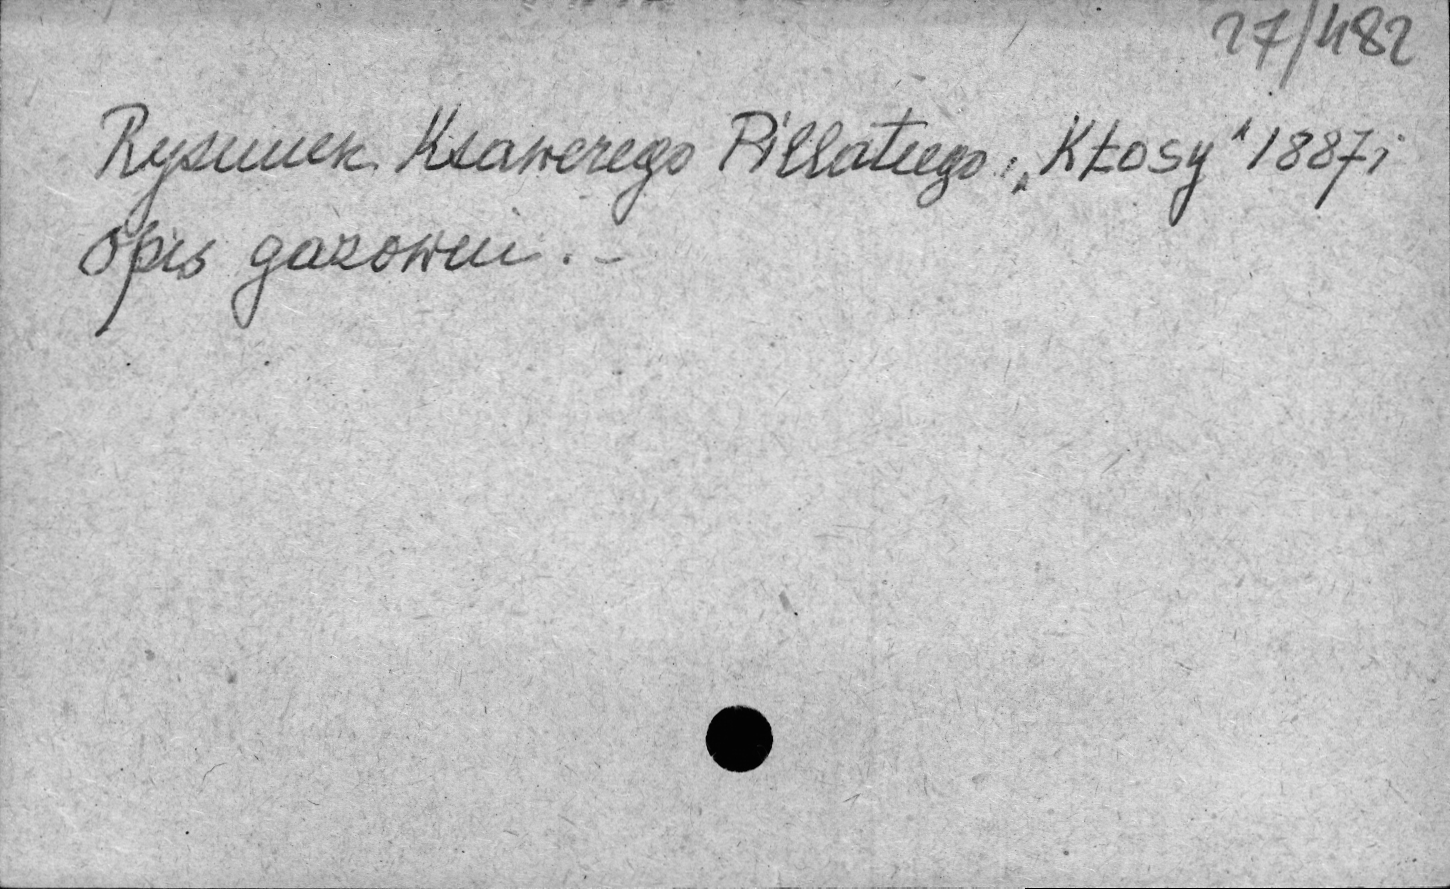 27/482
Rysunek Ksawerego Pillatiego, „Kłosy" 1887 i
opis gazowni. -